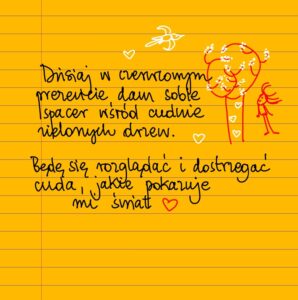 Dzisiaj w czerwcowym
prezencie dam sobie
spacer wśród cudnie
zielonych drzew.
Będę się rozglądać i dostrzegać
cuda, jakie pokazuje
mi świat